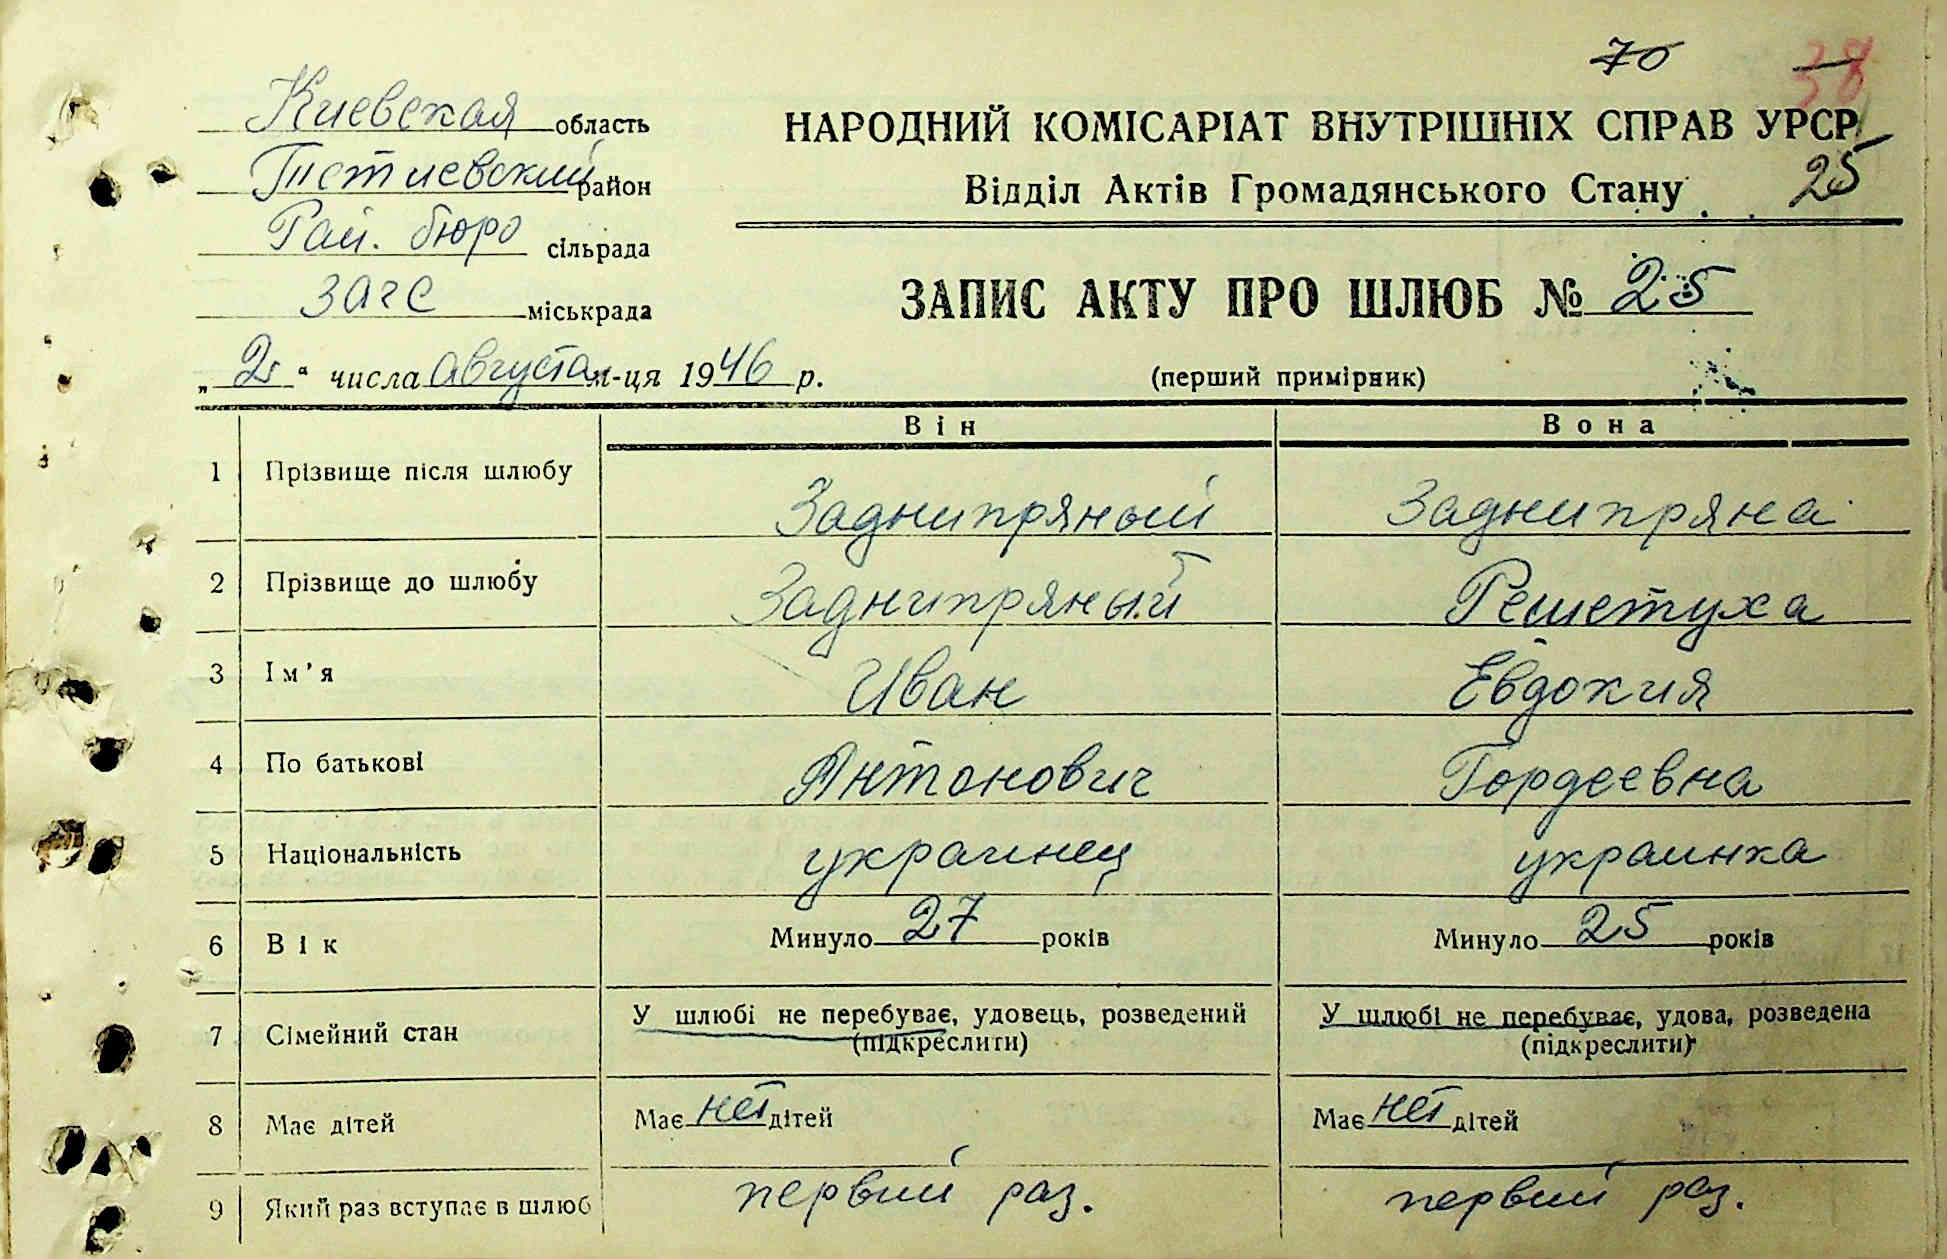 70 38
Киевская область
НАРОДНИЙ КОМІСАРІАТ ВНУТРІШНІХ СПРАВ УРСР
Тетиевский район
Відділ Актів Громадянського Стану 25
Рай. бюро сільрада
загс міськрада
ЗАПИС АКТУ ПРО ШЛЮБ № 25
„ " числа августа м-ця 1946 р.
(перший примірник)
Він Вона
1 Прізвище після шлюбу Заднипряный Заднипряна
2 Прізвище до шлюбу Заднипряный Решетуха
3 Ім'я Иван Евдокия
4 По батькові Антонович Гордеевна
5 Національність украинец украинка
6 Вік Минуло 27 років Минуло 25 років
7 Сімейний стан У шлюбі не перебуває, удовець, розведений У шлюбі не перебуває, удова, розведена
(підкреслити) (підкреслити)
8 Має дітей Має нет дітей Має нет дітей
9 Який раз вступає в шлюб первий раз. первий раз.